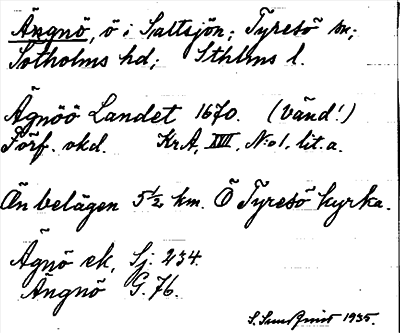 Ängnö, ö i Saltsjön; Tyresö sn;
Sotholms hd; Sthlms l.
Ägnöö Landet 1670. (Vänd!)
Förf. okd. KrA, XVII, No 1, lit. a.
Ön belägen 5 1/2 km. Ö Tyresö kyrka.
Ägnö ek, Sj. 234.
Ängnö G. 76.
S. Sundqvist 1935